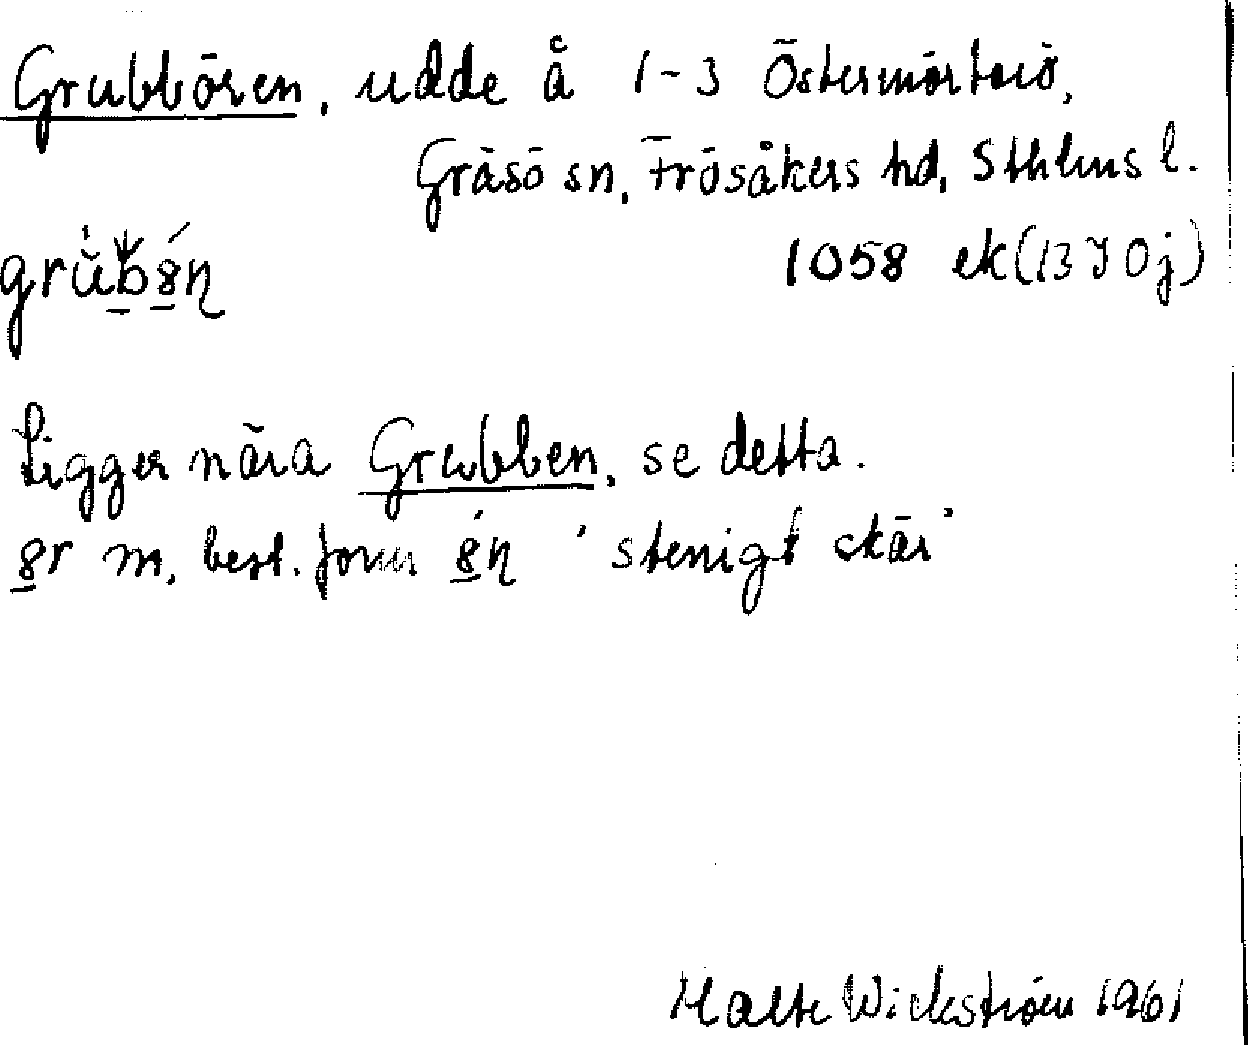 Grubbören, udde å 1-3 Östermörtarö,
Gräsö sn, Frösåkers hd, Sthlms l.
1058 ek (13 I 0 j)
Ligger nära Grubben, se detta.
m, best. form 'stenigt skär'
Malte Wickström 1961